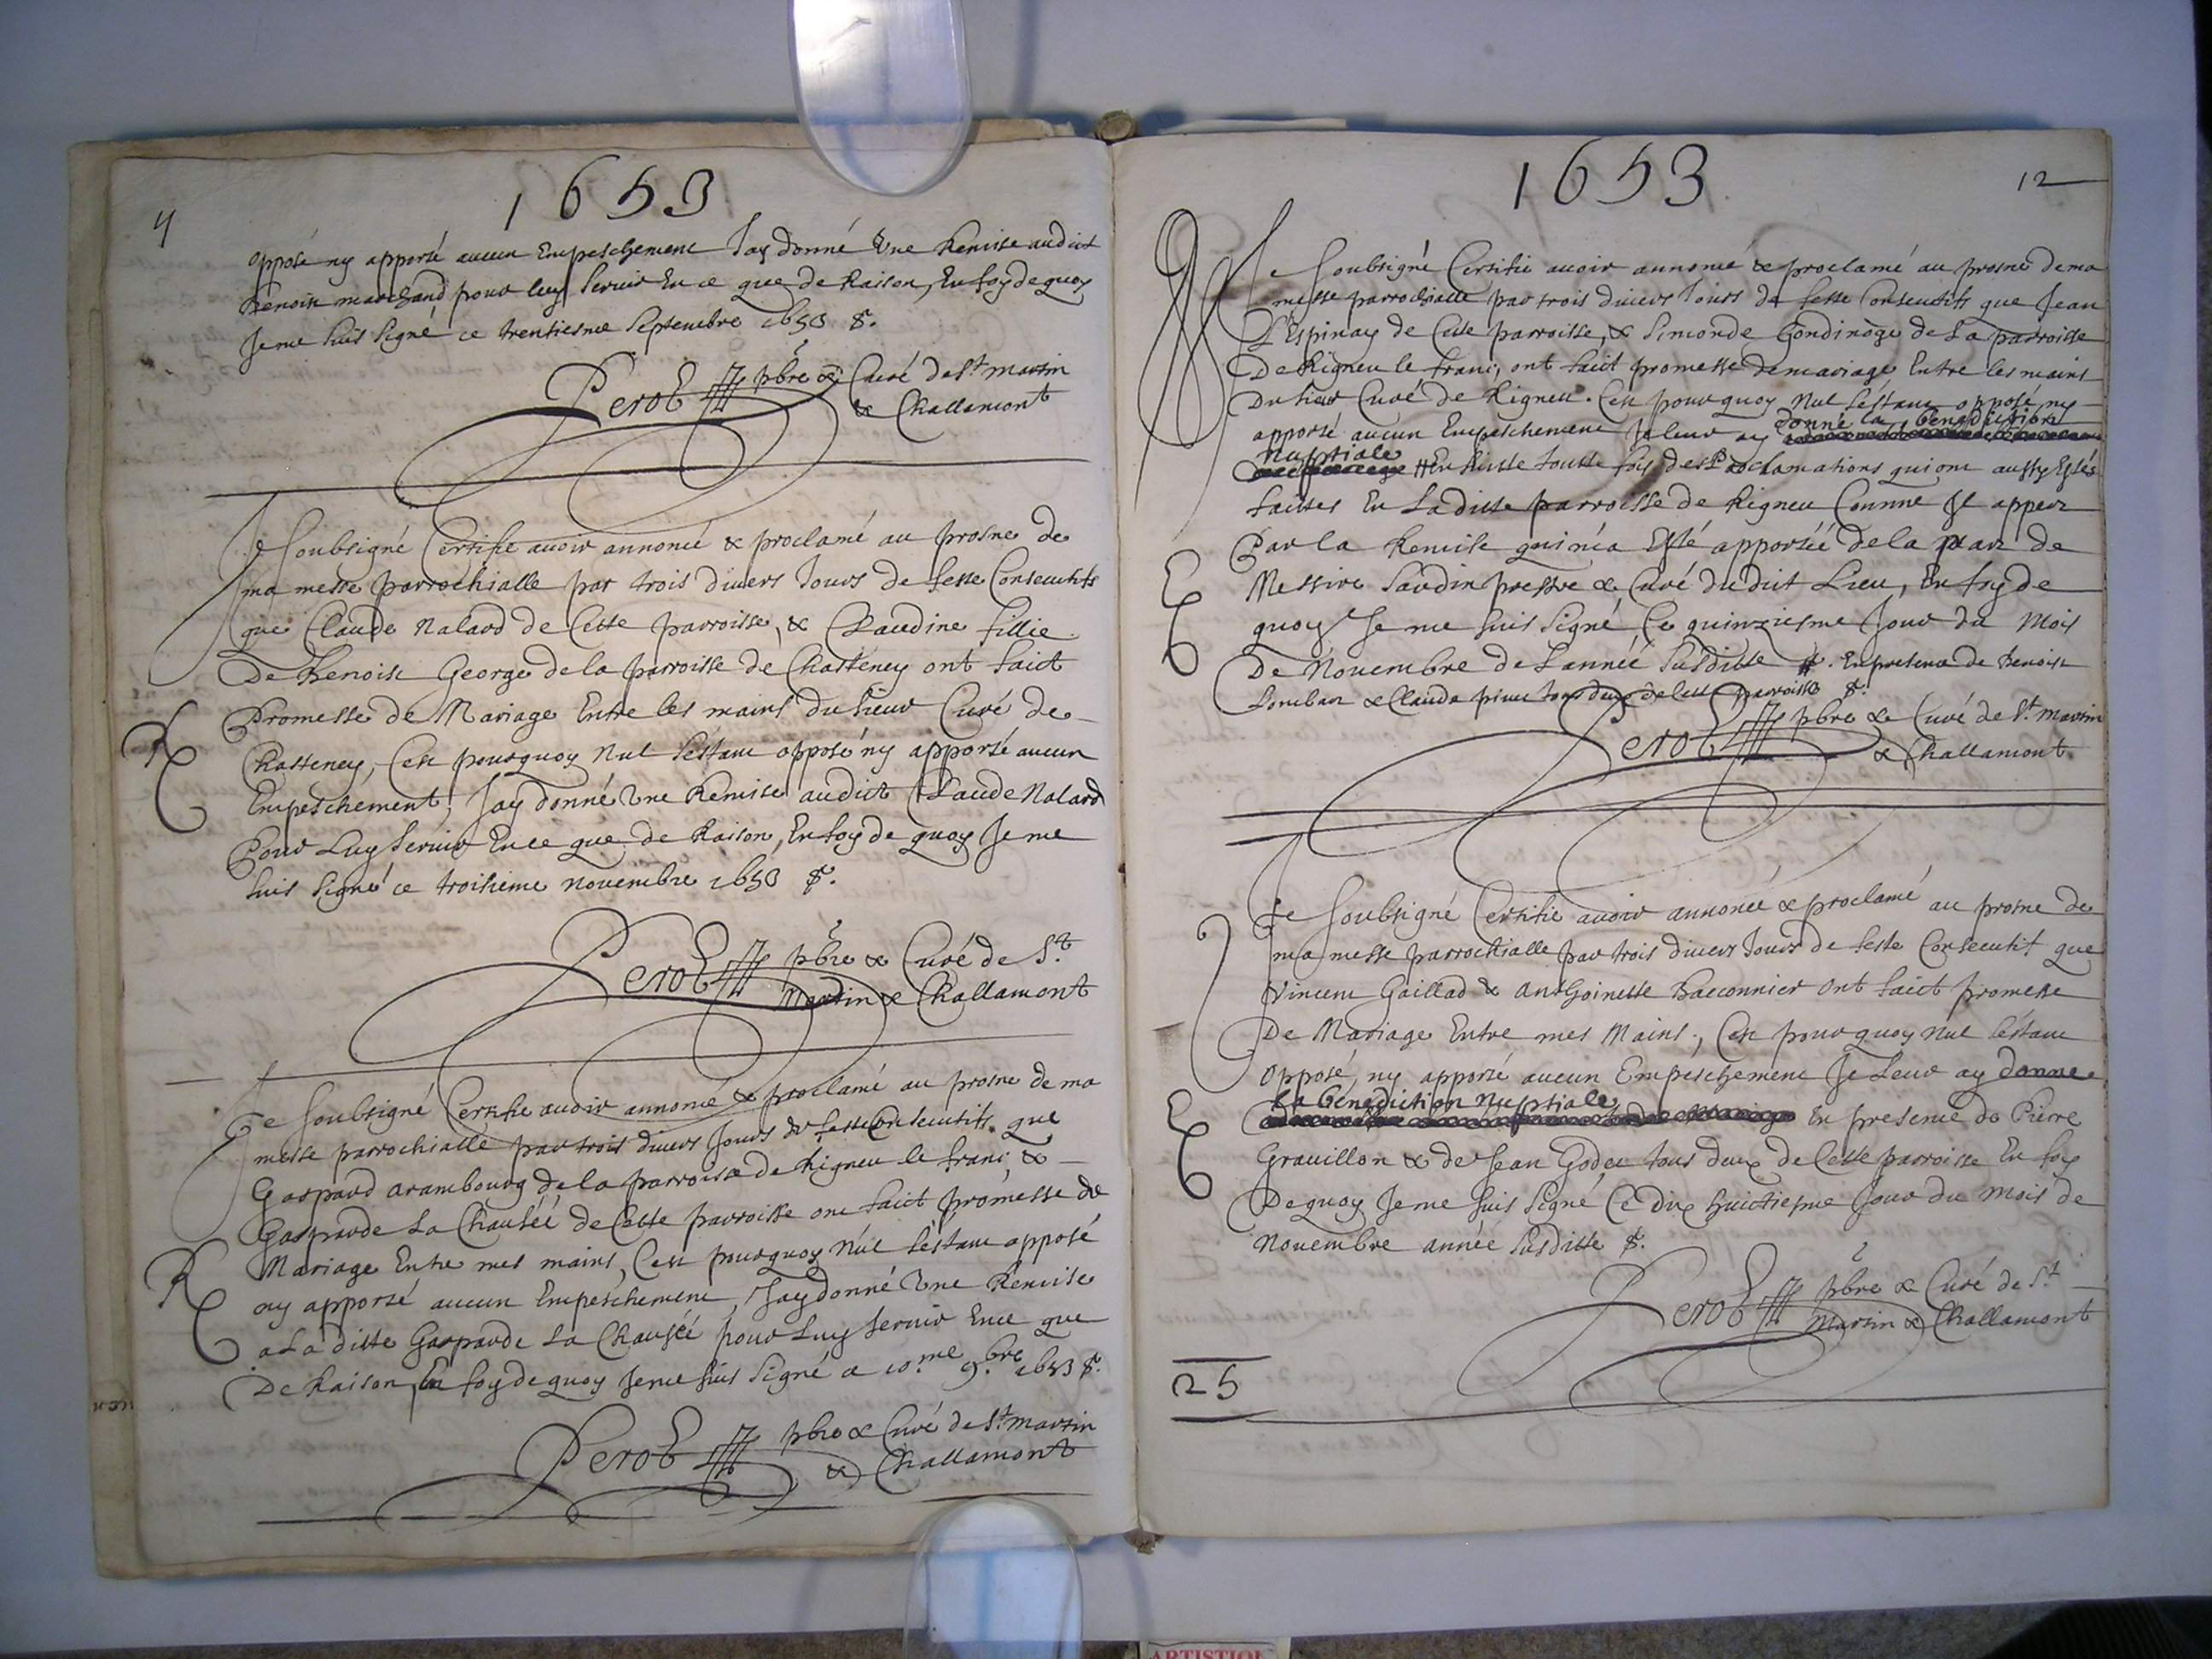 1653
11
opposé ny apporté aucun Empeschement Jay donné Une Remise audict
Benoist marchand pour luy Servir En ce que de Raison, En foy de quoy
Je me suis signé ce trentiesme Septembre 1653 &.
Perot pbre & Curé de St martin
& Challamont
Je soubsigné Certifie avoir annoncé & proclamé au prosne de
ma messe parrochialle par trois divers Jours de feste Consecutifs
que Claude Nalard de Cette parroisse, & Claudine fillie
De Benoist George de la parroisse de Chasteney ont faict
Promesse de Mariage Entre les mains du sieur Curé de
Chasteney, Cest pourquoy Nul s'éstant opposé ny apporté aucun
Empeschement, Jay donné Une Remise audict Claude Nalard
Pour Luy Servir En ce que de Raison, En foy de quoy Je me
suis signé ce troisieme novembre 1653 &.
Perot pbre & Curé de St
Martin & Challamont
Je soubsigné Certifie avoir annoncé & proclamé au prosne de ma
messe parrochialle par trois divers Jours de feste Consecutifs que
Gaspard arambourg de la parroisse de Rigneu le franc, &
Gasparde La Chauséé de Cette parroisse ont faict promesse de
Mariage Entre mes mains, Cest pourquoy Nul s'éstant opposé
ny apporté aucun Empeschement, Jay donné Une Remise
a La ditte Gasparde La Chauséé pour Luy servir En ce que
De Raison, En foy de quoy Je me suis signé ce 10.me 9.bre 1653 &.
Perot pbre & Curé de St martin
& Challamont
1653
12
Je soubsigné Certifie avoir annoncé & proclamé au prosne de ma
messe parrochialle par trois divers Jours de feste Consecutifs que Jean
L'Espinay de Cette parroisse, & Simonde Gondinoge de La parroisse
De Rigneu le franc, ont faict promesse de mariage Entre les mains
Du sieur Curé de Rigneu. Cest pourquoy Nul s'éstant opposé ny
apporté aucun Empeschement Je leur ay donné la benediction
nuptiale En suitte toutte fois des Proclamations qui ont aussy Estés
faittes En La ditte parroisse de Rigneu Comme Jl appert
Par la Remise qui m'a Esté apportéé de la part de
Messire Savdin prestre & Curé du dit Lieu, En foy de
quoy Je me suis signé Ce quinziesme Jour du Mois
De Novembre de L'annéé susditte. En presence de Benoist
Lombar & Claude tous deux de cette parroisse &.
Perot pbre & Curé de St Martin
& Challamont
Je soubsigné Certifie avoir annoncé & proclamé au prosne de
ma messe parrochialle par trois divers Jours de feste Consecutif que
Vincent Gaillad & Anthoinette Baconnier ont faict promesse
De Mariage Entre mes Mains, Cest pourquoy Nul s'éstant
opposé, ny apporté aucun Empeschement Je Leur ay donne
la benediction nuptiale En presence de Pierre
Gravillon & de Jean Godet tous deux de Cette parroisse En foy
De quoy Je me suis signé Ce dix huictiesme Jour du mois de
Novembre annéé susditte &.
Perot pbre & Curé de St
Martin & Challamont
25